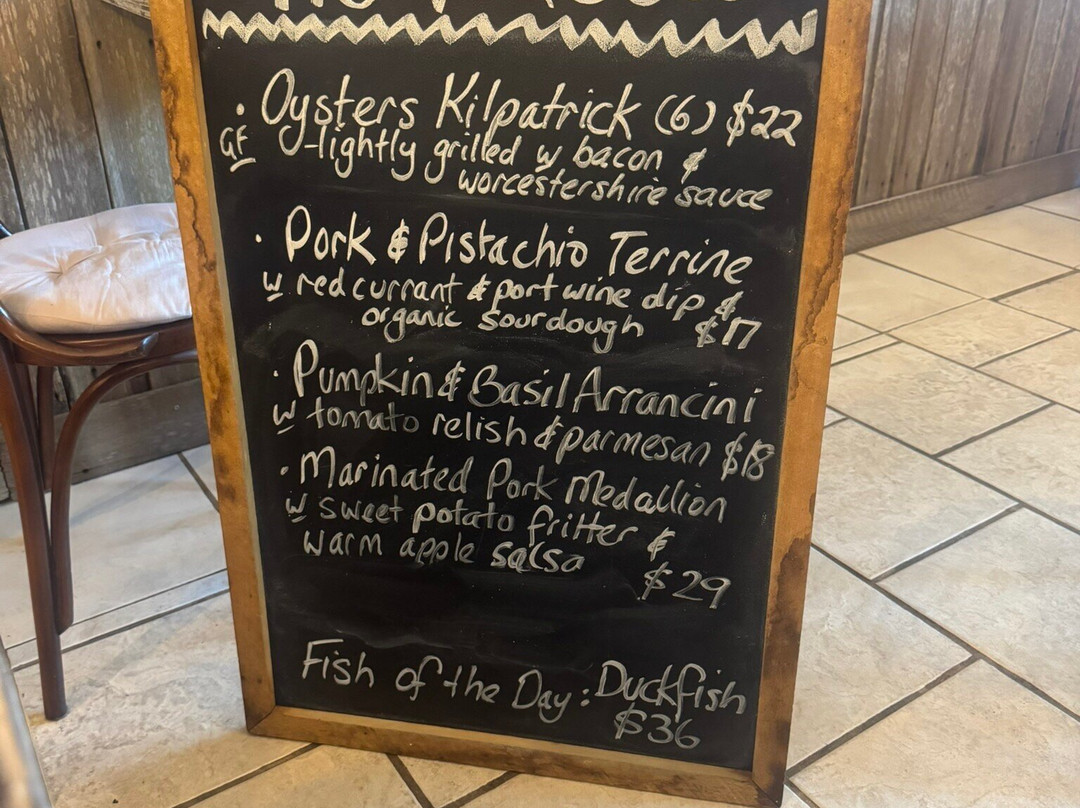 · Oysters Kilpatrick (6) $22
GF -lightly grilled w bacon &
worcestershire sauce
· Pork & Pistachio Terrine
w red currant & port wine dip &
organic sourdough $17
· Pumpkin & Basil Arrancini
w tomato relish & parmesan $18
· Marinated Pork Medallion
w sweet potato fritter &
warm apple salsa
$29
Fish of the Day: Duckfish
$36